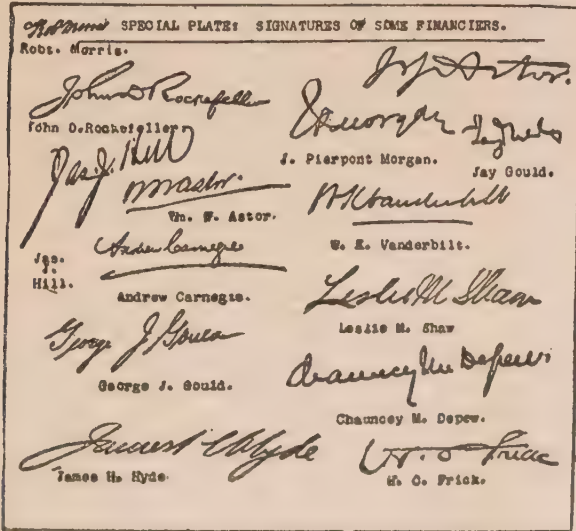 Robt Morris SPECIAL PLATE: SIGNATURES OF SOME FINANCIERS.
Robt. Morris.
J. J. Astor.
John D Rockefeller
John D. Rockefeller.
J. Pierpont Morgan.
Jay Gould
Jay Gould.
Jas. J. Hill
Jas.
J.
Hill.
Wm. W. Astor.
W K Vanderbilt
W. K. Vanderbilt.
Andrew Carnegie
Andrew Carnegie.
Leslie M Shaw
Leslie M. Shaw
George J. Gould
George J. Gould.
Chauncey M Depew
Chauncey M. Depew.
James H Hyde
James H. Hyde.
H. C. Frick
H. C. Frick.